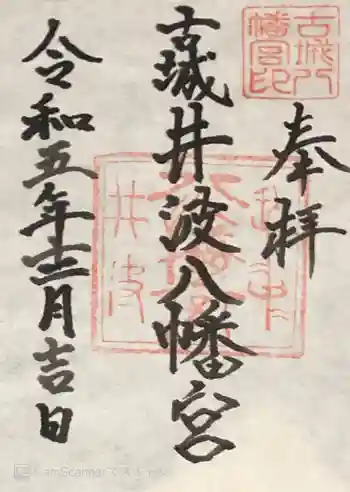 奉拝
古城井波八幡宮
令和五年十二月吉日
古城八
幡宮印
井波
CamScanner